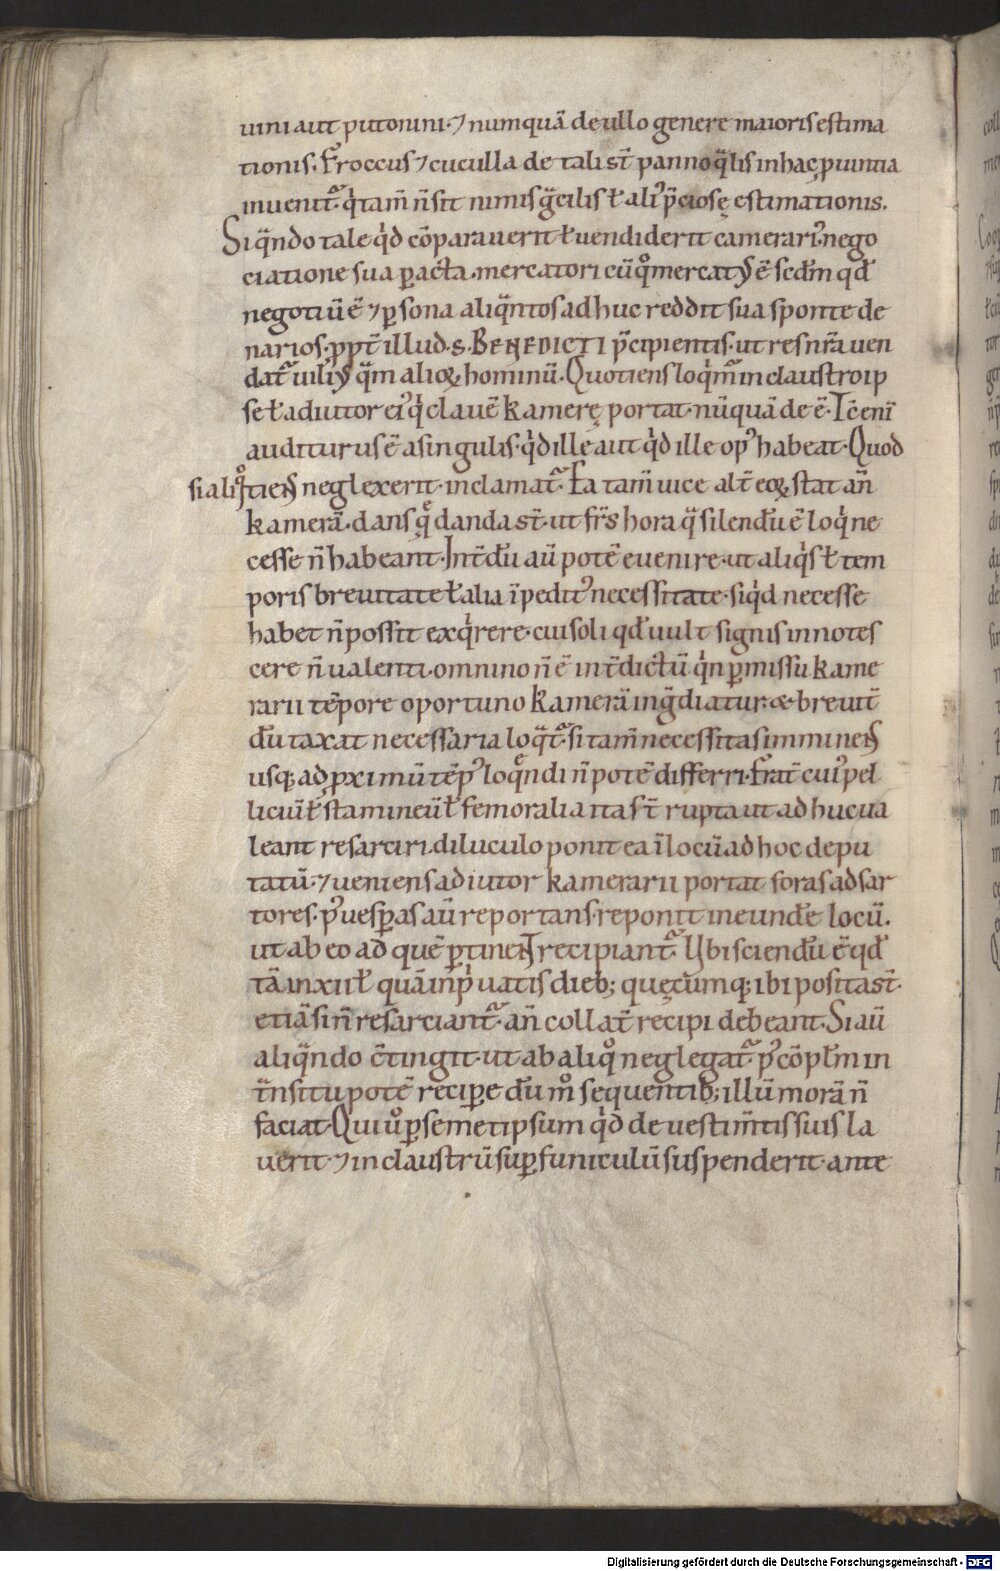 uini aut putonini · ⁊ numquā de ullo genere maioris estima
tionis. Froccus ⁊ cuculla de tali st̄ panno qͣlis in hac ꝓuintia
inuenit᷑. qͥ tam̄ n̄ sit nimis gͣcilis ł aliꝰ p̄ciosę estimationis.
Si qͣndo tale qͥd cōparauerit ł uendiderit camerariꝰ. nego
ciatione sua ꝑacta. mercatori cū qͦ mercatꝰ ē scdm̄ qđ
negotiū ē ⁊ ꝑsona aliqͣntos adhuc reddit sua sponte de
narios. ꝓpt̄ illud · S. BENEDICTI p̄cipientis · ut res nr̄a uen
dat᷑ uiliꝰ qͣm alioꝝ hominū. Quotiens loqͥm᷑ in claustro ip
se ł adiutor eiꝰ qͥ clauē kamerę portat · nūquā deē · Ic̄ eni
auditurus ē a singulis · qͥd ille aut qͥd ille opꝰ habeat · Quod
si aliqͦtiens neglexerit · inclamat᷑. Ea tam̄ uice alt̄ eoꝝ stat an̄
kamerā · dans quę danda st̄ · ut fr̄s hora qͣ silendū ē loqͥ ne
cesse n̄ habeant · Int̄dū aū potē euenire · ut aliqͥs ł tem
poris breuitate ł alia īpeditꝰ necessitate · si qͥd necesse
habet n̄ possit exqͥrere · cui soli qđ uult signis innotes
cere n̄ ualenti · omnino n̄ ē int̄dictū qͥn ꝑmissu kame
rarii tēpore oportuno kamerā ingͣdiatur · & breuit̄
dū taxat necessaria loqͣt᷑. si tam̄ necessitas imminens
usqꝫ ad ꝓximū tēpꝰ loqͤndi n̄ potē differri · Frat̄ cuiꝰ pel
liciū ł stamineū ł femoralia ita st̄ rupta ut adhuc ua
leant resarciri · diluculo ponit ea ī locū ad hoc depu
tatū · ⁊ ueniens adiutor kamerarii portat foras ad sar
tores · pꝰ uesꝑas aū reportans · reponit in eunde locū.
ut ab eo ad quē ꝑtinent recipiant᷑. Ubi sciendū ē qđ
tā in xii ł quā in p̄uatis dieb; quęcumqꝫ ibi posita st̄ ·
etiā si n̄ resarciant᷑ · an̄ collat̄ recipi debeant · Si aū
aliqͣndo c̄tingit · ut ab aliqͦ neglegat᷑ · pꝰ cōpl̄m in
tͣnsitu potē reciꝑe dūmͦ sequentib; illū morā n̄
faciat · Qui uͦ ꝑ semetipsum qͥd de uestim̄tis suis la
uerit · ⁊ in claustrū suꝑ funiculū suspenderit · ante
Digitalisierung gefördert durch die Deutsche Forschungsgemeinschaft - DFG